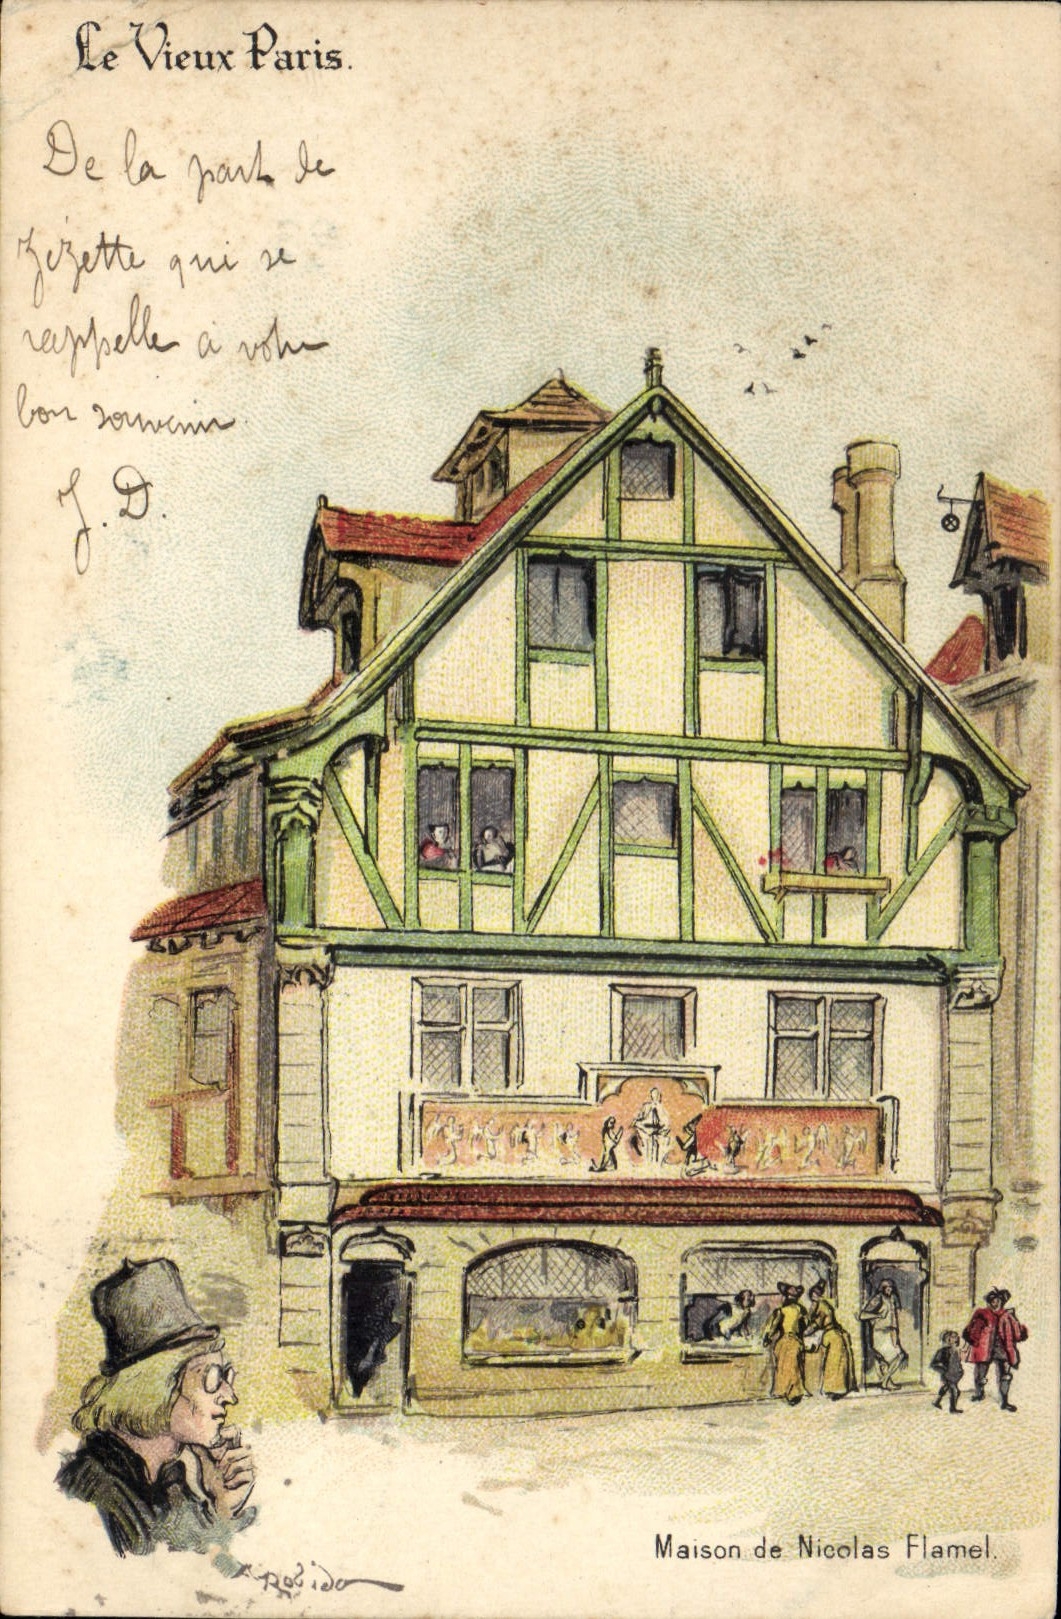 Le Vieux Paris.
De la part de
Zézette qui se
rappelle à votre
bon souvenir
J. D.
A Robida
Maison de Nicolas Flamel.